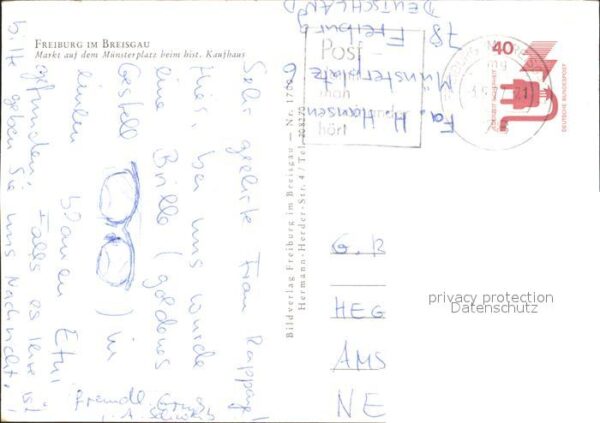 FREIBURG IM BREISGAU
Markt auf dem Münsterplatz beim hist. Kaufhaus
Sehr geehrte Frau Rapping!
Hier, bei uns wurde
eine Brille (goldenes
Gestell) in
einem blauen Etui
gefunden. Falls es Ihre ist
b. geben Sie uns Nachricht.
Freundl. Grüße
Bildverlag Freiburg im Breisgau — Nr.
Hermann-Herder-Str. 4 / Tel.
Fa. H. Hansen
Münsterplatz
78 Freiburg
DEUTSCHLAND
Post
man
hört
40
DEUTSCHE BUNDESPOST
G. B
HEG
AMS
NE
privacy protection
Datenschutz